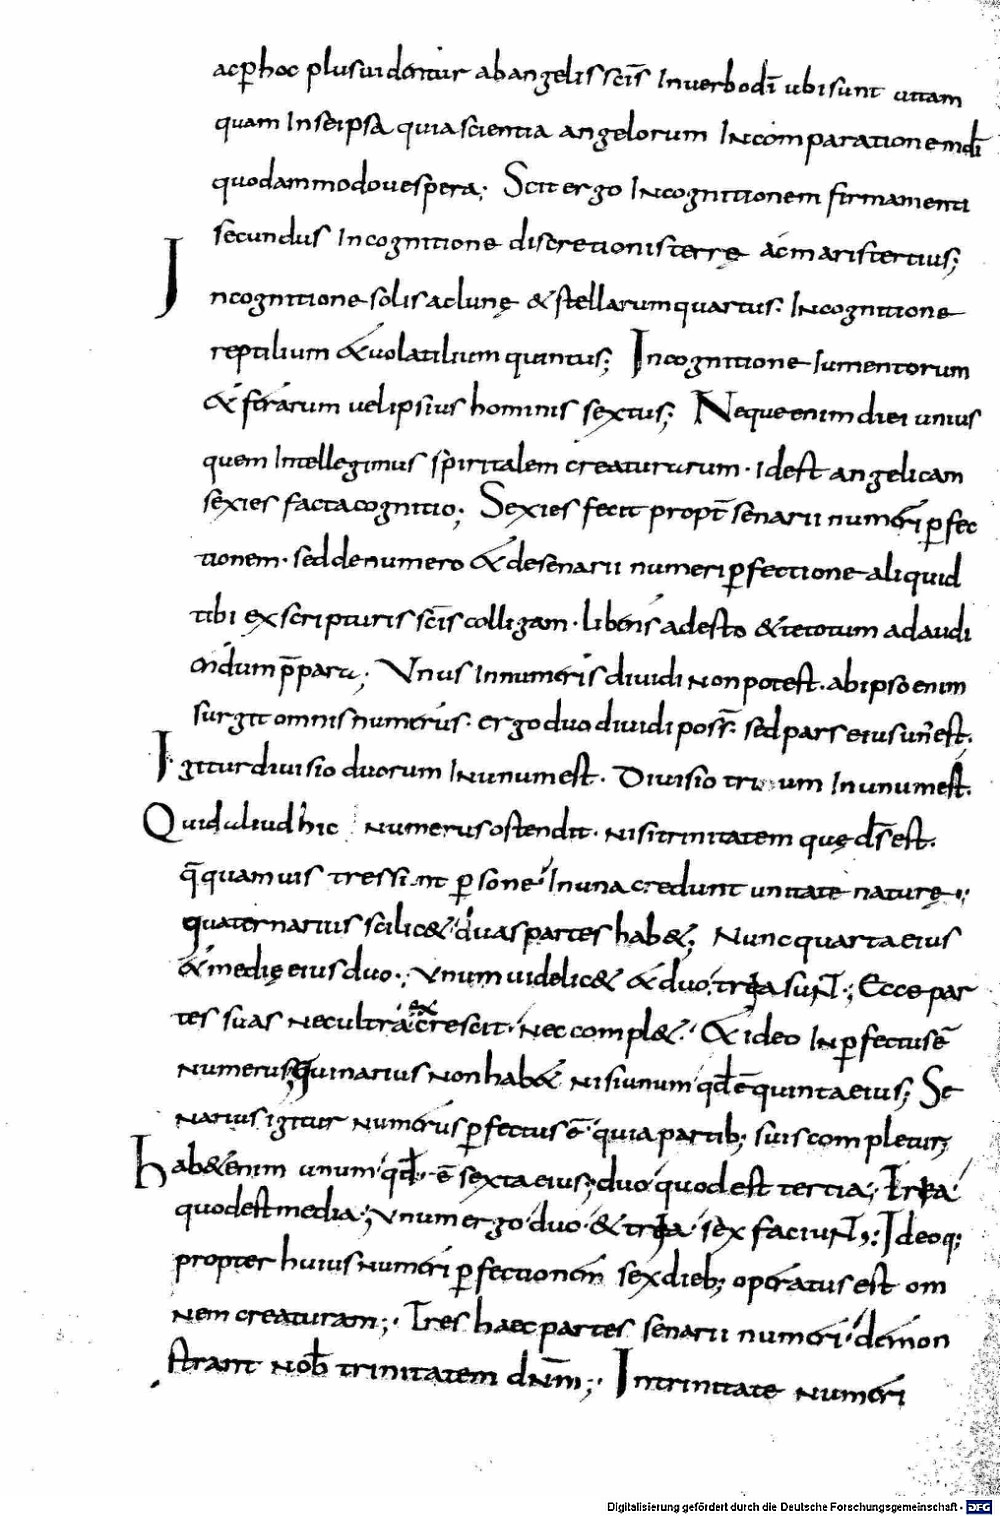 acꝑhoc plusuidentur abangelis scīs Inuerbodī ubisunt uitam
quam Inseipsa quiascientia angelorum Incomparationemdī
quodammodouespera; Scitergo Incognitionem firmamenti
secundus Incognitione discretionisterrę acmaristertius;
Incognitionesolisaclunę &stellarumquartus. Incognitione
reptilium &uolatiliumquintus; Incognitione Iumentorum
&ferarum uelipsius hominis sextus; Nequeenim diei unius
quem Intellegimus spiritalem creaturarum. idest angelicam
sexies factacognitio; Sexies fecit propt̄ senarii numeri ꝑfec
tionem. seddenumero &desenarii numeri ꝑfectione aliquid
tibi exscripturis scīs colligam. libens adesto &tetotum adaudi
endum p̄para; Vnus Innumeris diuidi nonpotest. abipsoenim
surgit omnisnumerus. ergoduodiuidi poss̄. sedpars eiusun̄est.
Igiturdiuisio duorum Inunumest. Diuisio trium Inunumest.
Quidaliudhic numerusostendit. nisitrinitatem quę d̄sest.
q̄quamuis tressint ꝑsone Inunacredunt unitate naturę;
quaternarius scilic& duaspartes hab&; Nuncquartaeius
&medię eiusduo; Vnum uidelic& &duo tria sunt; Ecce par
tes suas necultra excrescit. nec compl&. &ideo Inꝑfectusē
numerus; quinarius nonhab& nisiunum qd̄ ē quintaeius; Se
narius igitur numerus ꝑfectus ē quia partib; suis completur;
Hab&enim unum qd̄ ē sextaeius; duo quodest tertia; Tria
quodestmedia; Vnumergo duo &tria sex faciunt; Ideoq;
propter huiusnumeri ꝑfectionem sexdieb; operatusest om
nem creaturam; Tres haecpartes senarii numeri demon
strant nob̄ trinitatem dn̄m; Intrinitate numeri
Digitalisierung gefördert durch die Deutsche Forschungsgemeinschaft - DFG